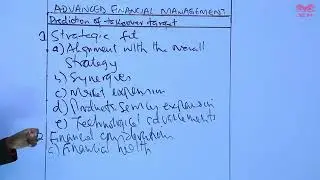 ADVANCED FINANCIAL MANAGEMENT
Prediction of takeover target
Strategic fit
a) Alignment with the overall
strategy
b) Synergies
c) Market expansion
d) Products/service expansion
e) Technological advancements
2 Financial considerations
a) Financial health